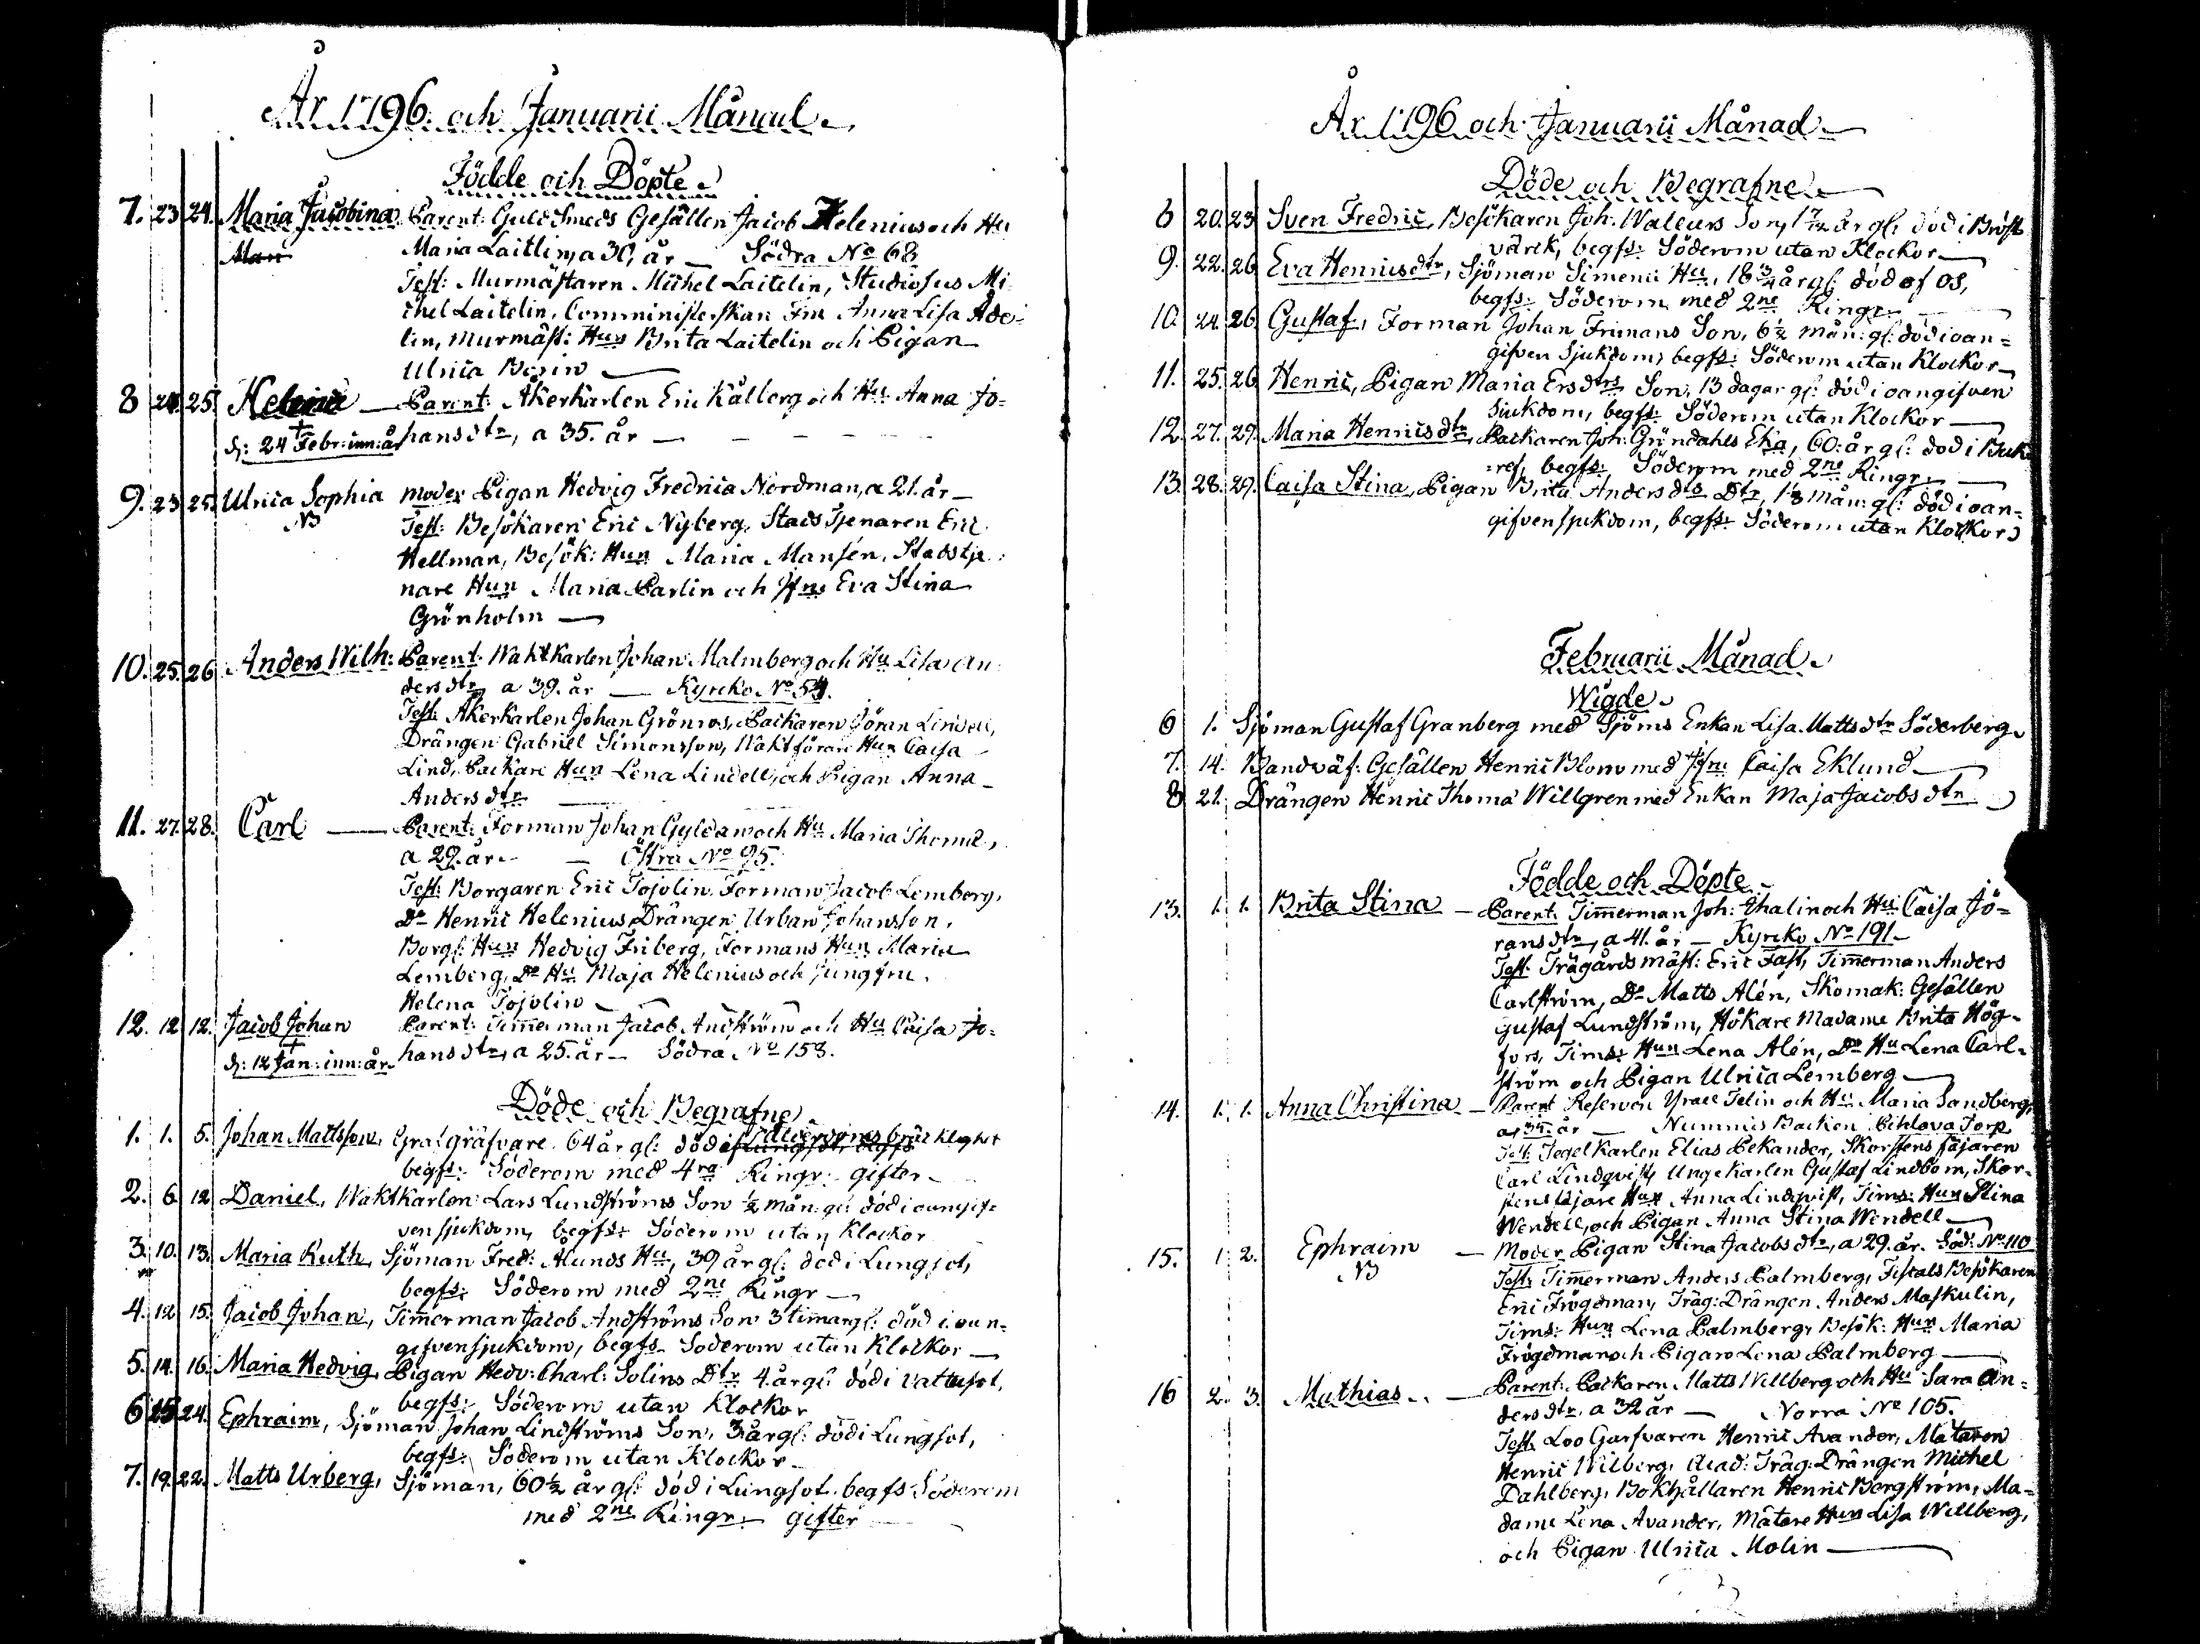 År 1796. och Januarii Månad.
Födde och Döpte.
7. 23 24. Maria Jacobina Parent: Guld Smeds Gesällen Jacob Helenius och Hu
Man Maria Laitlin, a 30, år — Södra No 68
Test: Murmästaren Michel Laitelin, Studiosus Mi-
chel Laitelin, Comministerskan Fru Anna Lisa Ade-
lin, Murmäst: Hun Brita Laitelin och Pigan
Ulrica
8 24. 25. Helena — Parent: Åkerkarlen Eric Kålberg och Hu Anna Jo=
d: 24 Febr: inn: år hans dtr, a 35. år —
9. 23 25. Ulrica Sophia moder Pigan Hedvig Fredrica Nordman, a 21. år —
NB Test: Besökaren Eric Nyberg, Stads Tjenaren Eric
Hellman, Besök: Hun Maria Mansén, Stadstje-
nare Hun Maria Parlin och Jfrn Eva Stina
Grönholm —
10. 25. 26 Anders Wilh: Parent: Waktkarlen Johan Malmberg och Hu Lisa An-
ders dtr, a 39. år — Kyrcko No 54.
Test: Åkerkarlen Johan Grönros, Packaren Göran Lindell,
Drängen Gabriel Simonsson, Waktförare Hun Caisa
Lind, Packare Hun Lena Lindell, och Pigan Anna
Anders dtr —
11. 27. 28. Carl — Parent: Forman Johan Gyldan och Hu Maria Thomæ,
a 29. år — Östra No 95.
Test: Borgaren Eric Tojolin, Forman Jacob Lemberg,
Do Henric Helenius, Drängen Urban Johansson,
Borg: Hun Hedvig Friberg, Formans Hun Maria
Lemberg, Do Hu Maja Helenius och Jungfru
Helena Tojolin
12. 12 12. Jacob Johan Parent: Timerman Jacob Andström och Hu Caisa Jo-
d: 12 Jan: inn: år. hans dtr, a 25. år — Södra No 153.
Döde och Begrafne
1. 1. 5. Johan Mattsson, 64 år gl: död i
begfs: Söderom med 4ra Ringr. Gifter.
2. 6 12 Daniel, Waktkarlen Lars Lundströms Son ½ mån: gl: död i oangif-
ven sjukdom, begfs: Söderom utan Klockor
3. 10. 13. Maria Ruth, Sjöman Fred: Alunds Hu, 39 år gl: död i Lungsot,
begfs: Söderom med 2ne Ringr —
4. 12 15. Jacob Johan, Timerman Jacob Andströms Son 3 timar gl: död i oan-
gifven sjukdom, begfs. Söderom utan Klockor —
5. 14. 16. Maria Hedvig, Pigan Hedv: Charl: Solins Dtr 4. år gl: död i vattusot,
begfs: Söderom utan Klockor
6 15 24. Ephraim, Sjöman Johan Lindströms Son, 3 år gl: död i Lungsot,
begfs: Söderom utan Klockor
7. 19. 22. Matts Urberg, Sjöman, 60½ år gl: död i Lungsot. begfs Söderom
med 2ne Ringr. Gifter
År 1796 och Januarii Månad
Döde och Begrafne
8 20. 23 Sven Fredric, Besökaren Joh: Waleurs Son, 1 7/12 år gl: död i Bröst
värck, begfs: Söderom utan Klockor —
9. 22. 26 Eva Henricsdtr, Sjöman Simenii Hu, 18 ¾ år gl: död af os,
begfs: Söderom med 2ne Ringr
10. 24. 26. Gustaf, Forman Johan Frimans Son, 6½ mån: gl: död i oan=
gifven Sjukdom, begfs: Söderom utan Klockor
11. 25. 26. Henric, Pigan Maria Ersdtrs Son, 13 dagar gl: död i oangifven
Sjukdom, begfs: Söderom utan Klockor —
12. 27. 29. Maria Henricsdtr, Packaren Joh: Gröndahls Eka, 60: år gl: död i Buk
ref, begfs: Söderom med 2ne Ringr. —
13. 28. 29. Caisa Stina, Pigan Brita Andersdtrs Dtr, 1⅓ mån: gl: död i oan=
gifven sjukdom, begfs: Söderom utan Klockor
Februarii Månad.
Wigde.
6 1. Sjöman Gustaf Granberg med Sjöms Enkan Lisa Mattsdtr Söderberg.
7. 14. Bandväf: Gesällen Henric Blom med Jfrn Caisa Eklund —
8 21. Drängen Henric Thoma Willgren med Enkan Maja Jacobsdtr
Födde och Döpte
13. 1. 1. Brita Stina — Parent: Timerman Joh: Thalin och Hu Caisa Jö=
ransdtr, a 41. år — Kyrcko No 191.
Test: Trägårds mäst: Eric Fast, Timerman Anders
Carlström, Do Matts Alén, Skomak: Gesällen
Gustaf Lundström, Hökare Madame Brita Hög-
fors, Tims: Hun Lena Alén, Do Hu Lena Carl-
ström och Pigan Ulrica Lemberg —
14. 1. 1. Anna Christina — Parent Reserven Yrael Telin och Hu Maria Sandberg,
a, 35. år — Nummis Backen Pihlava Torp
Test: Tegelkarlen Elias Pekander, Skorstens fäjaren
Carl Lindqvist, Ungekarlen Gustaf Lindbom, Skor-
stens fäjare Hun Anna Lindqvist, Tims: Hun Stina
Wendell, och Pigan Anna Stina Wendell —
15. 1. 2. Ephraim — Moder, Pigan Stina Jacobsdtr, a 29. år. Söd: No 110
NB Test: Timerman Anders Palmberg, Fiscals Besökaren
Eric Frögdman, Träg: Drängen Anders Maskulin,
Tims: Hun Lena Palmberg, Besök: Hun Maria
Frögdman och Pigan Lena Palmberg —
16 2. 3. Mathias. — Parent: Packaren Matts Willberg och Hu Sara An=
dersdtr, a 32 år — Norra No 105.
Test: Loo Garfvaren Henric Avander, Mätaren
Henric Wilberg, Acad: Träg: Drängen Michel
Dahlberg, Bokhållaren Henric Borgström, Ma=
dame Lena Avander, Mätare Hun Lisa Willberg,
och Pigan Ulrica Molin —